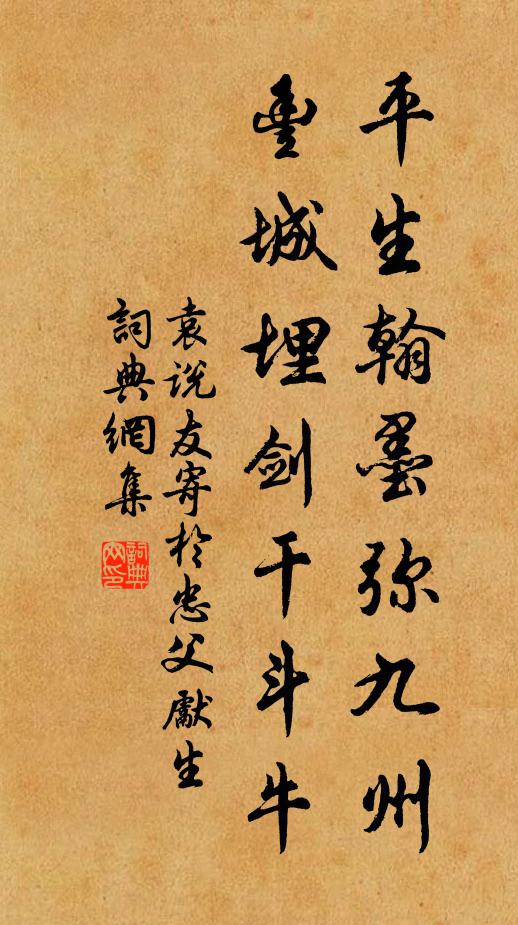 平生翰墨弥九州
豊城埋剑干斗牛
袁说友寄於忠父獻生
詞典網集
詞典
网印